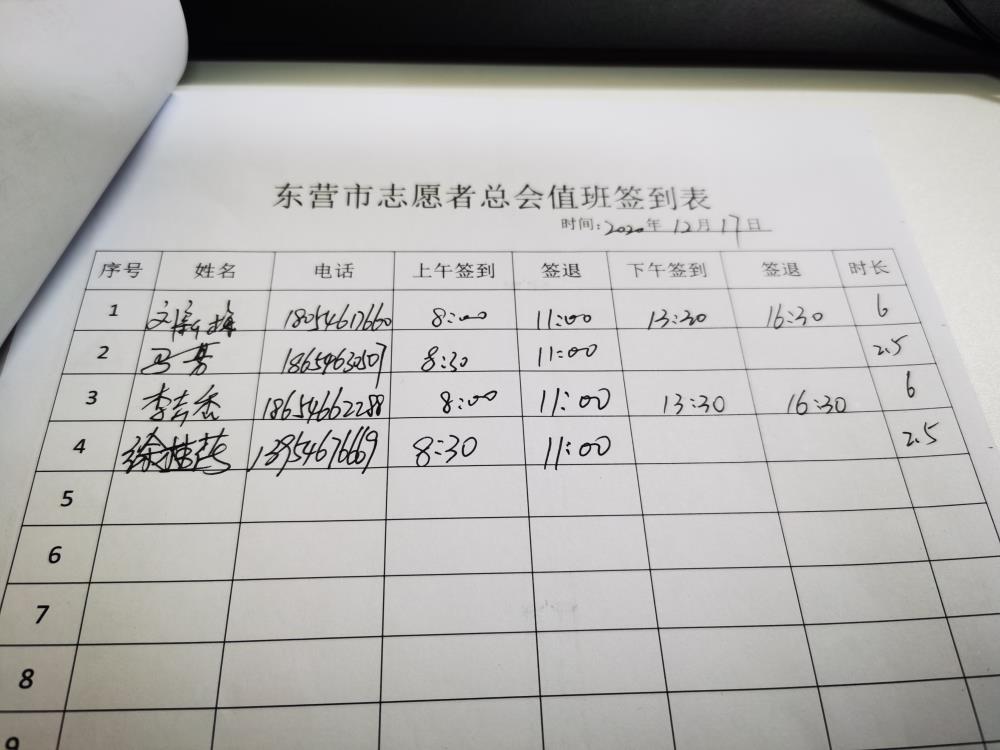 东营市志愿者总会值班签到表
时间:2020年12月17日
序号 姓名 电话 上午签到 签退 下午签到 签退 时长
1 18054617660 8:00 11:00 13:30 16:30 6
2 马芳 18654630507 8:30 11:00 2.5
3 李秀香 18654662288 8:00 11:00 13:30 16:30 6
4 13954676669 8:30 11:00 2.5
5
6
7
8
9